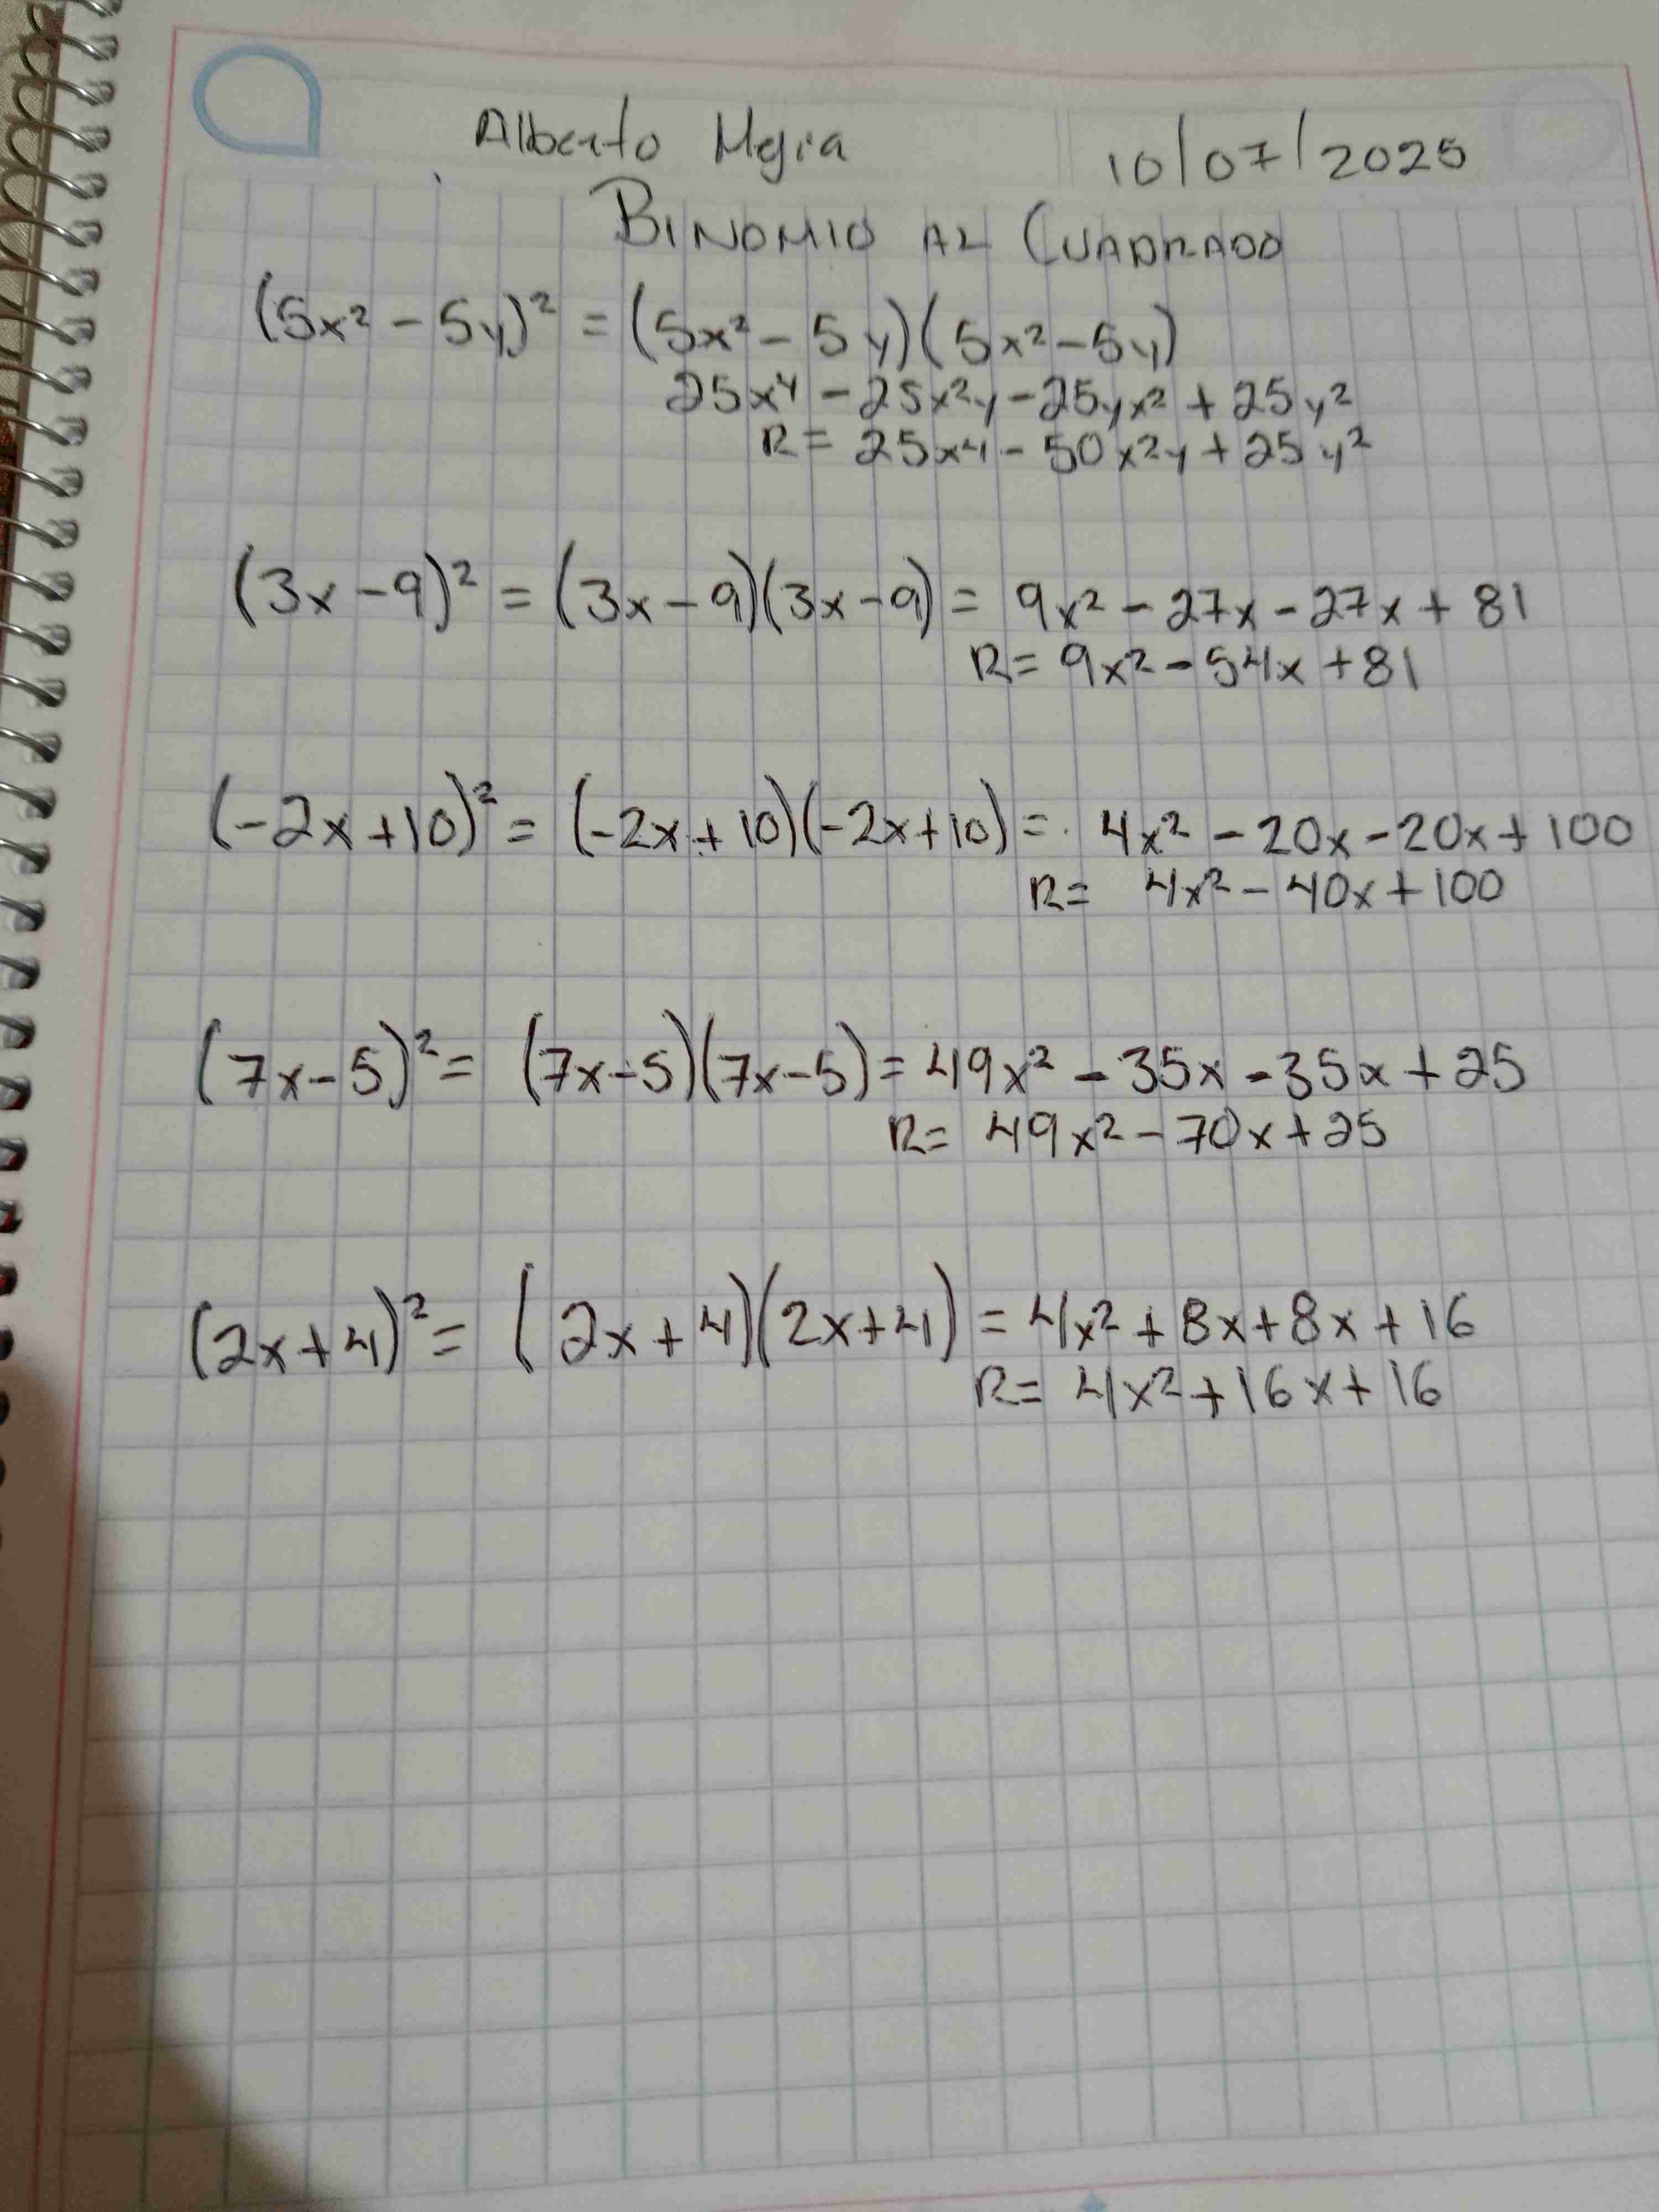 Alberto Mejia 10/07/2025
BINOMIO AL CUADRADO
(5x² - 5y)² = (5x² - 5y)(5x² - 5y)
25x⁴ - 25x²y - 25yx² + 25y²
R = 25x⁴ - 50x²y + 25y²
(3x - 9)² = (3x - 9)(3x - 9) = 9x² - 27x - 27x + 81
R = 9x² - 54x + 81
(-2x + 10)² = (-2x + 10)(-2x + 10) = 4x² - 20x - 20x + 100
R = 4x² - 40x + 100
(7x - 5)² = (7x - 5)(7x - 5) = 49x² - 35x - 35x + 25
R = 49x² - 70x + 25
(2x + 4)² = (2x + 4)(2x + 4) = 4x² + 8x + 8x + 16
R = 4x² + 16x + 16